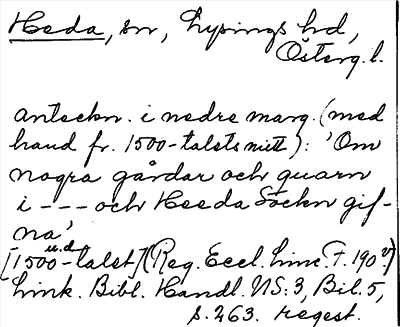 Heeda, sn, Lysings hd,
Österg. l.
anteckn. i nedre marg. (med
hand fr. 1500-talets mitt): 'Om
nogra gårdar och quarn
i --- och Heeda Sockn gif-
na'
u.d.
[1500-talet] (Reg. Eccl. Linc. F. 190 v.)
Link. Bibl. Handl. NS: 3, Bil. 5,
s. 263. regest.